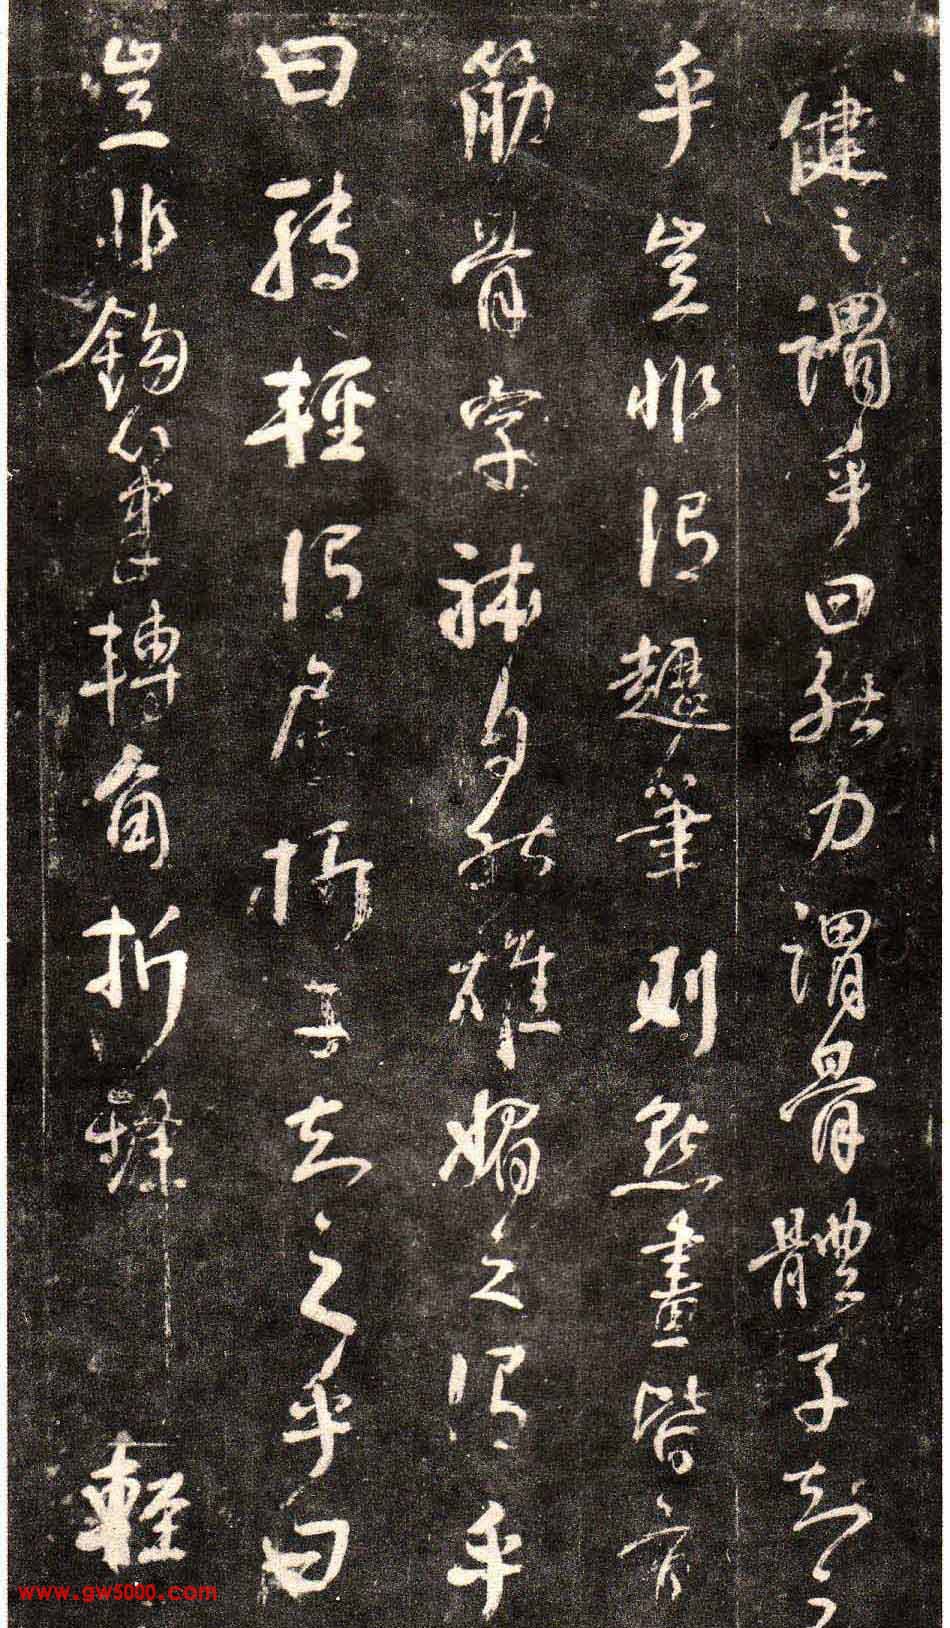 健之謂乎曰然力謂骨體子知之
乎豈非謂趯筆則點畫皆有
筋骨字體自然雄媚之謂乎
曰轉輕謂屈折子知之乎曰
豈非鉤筆轉角折鋒輕
www.gw5000.com